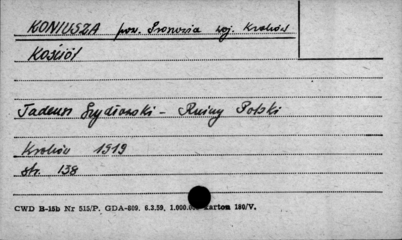 KONIUSZA pow. Sronovia woj. Kraków
Kościół
Tadeusz Szydłowski - Ruiny Polski
Kraków 1919
str. 138
CWD B-15b Nr 515/P. GDA-809. 6.3.59. 1.000.00 karton 180/V.